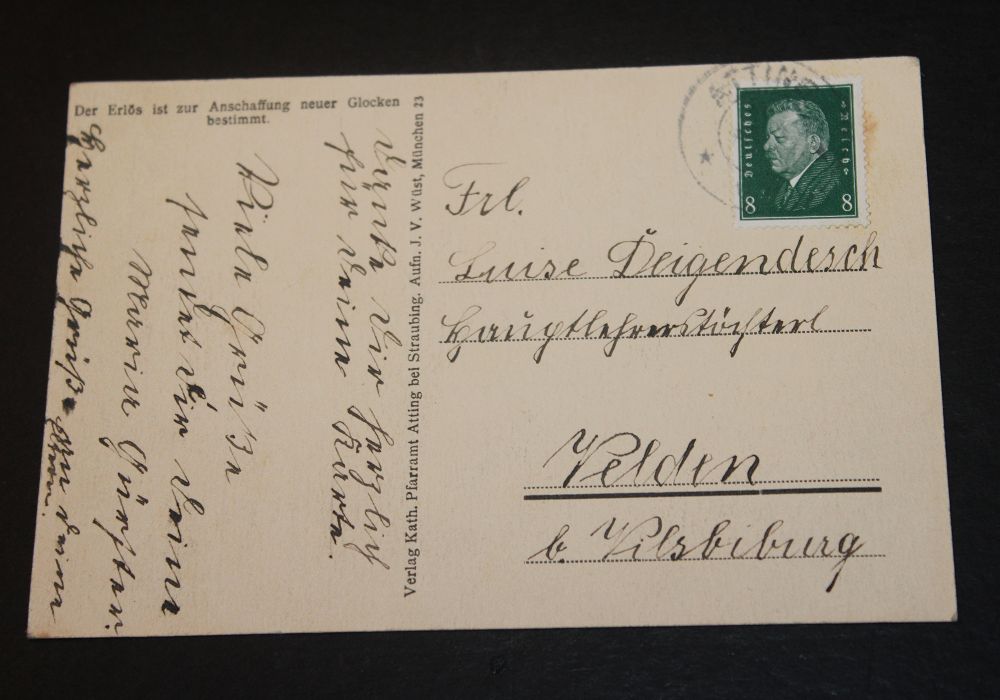 Der Erlös ist zur Anschaffung neuer Glocken
bestimmt.
Viele Grüße
sendet Dir Deine
Maria
Herzliche Grüße an Deine
Eltern.
Dir herzlich
für Deine Karte.
Verlag Kath. Pfarramt Atting bei Straubing. Aufn. J. V. Wüst, München 23
ATTING
Deutsches Reich
8 8
Frl.
Luise Deigendesch
Hauptlehrerstöchterl
Velden
b. Vilsbiburg